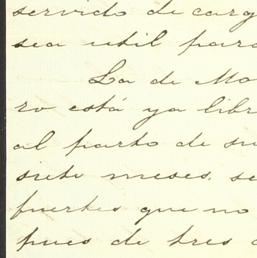 servido de carg
sea util para
La de Mo
ro está ya libr
al parto de su
siete meses, se
fuertes que no
pues de tres d